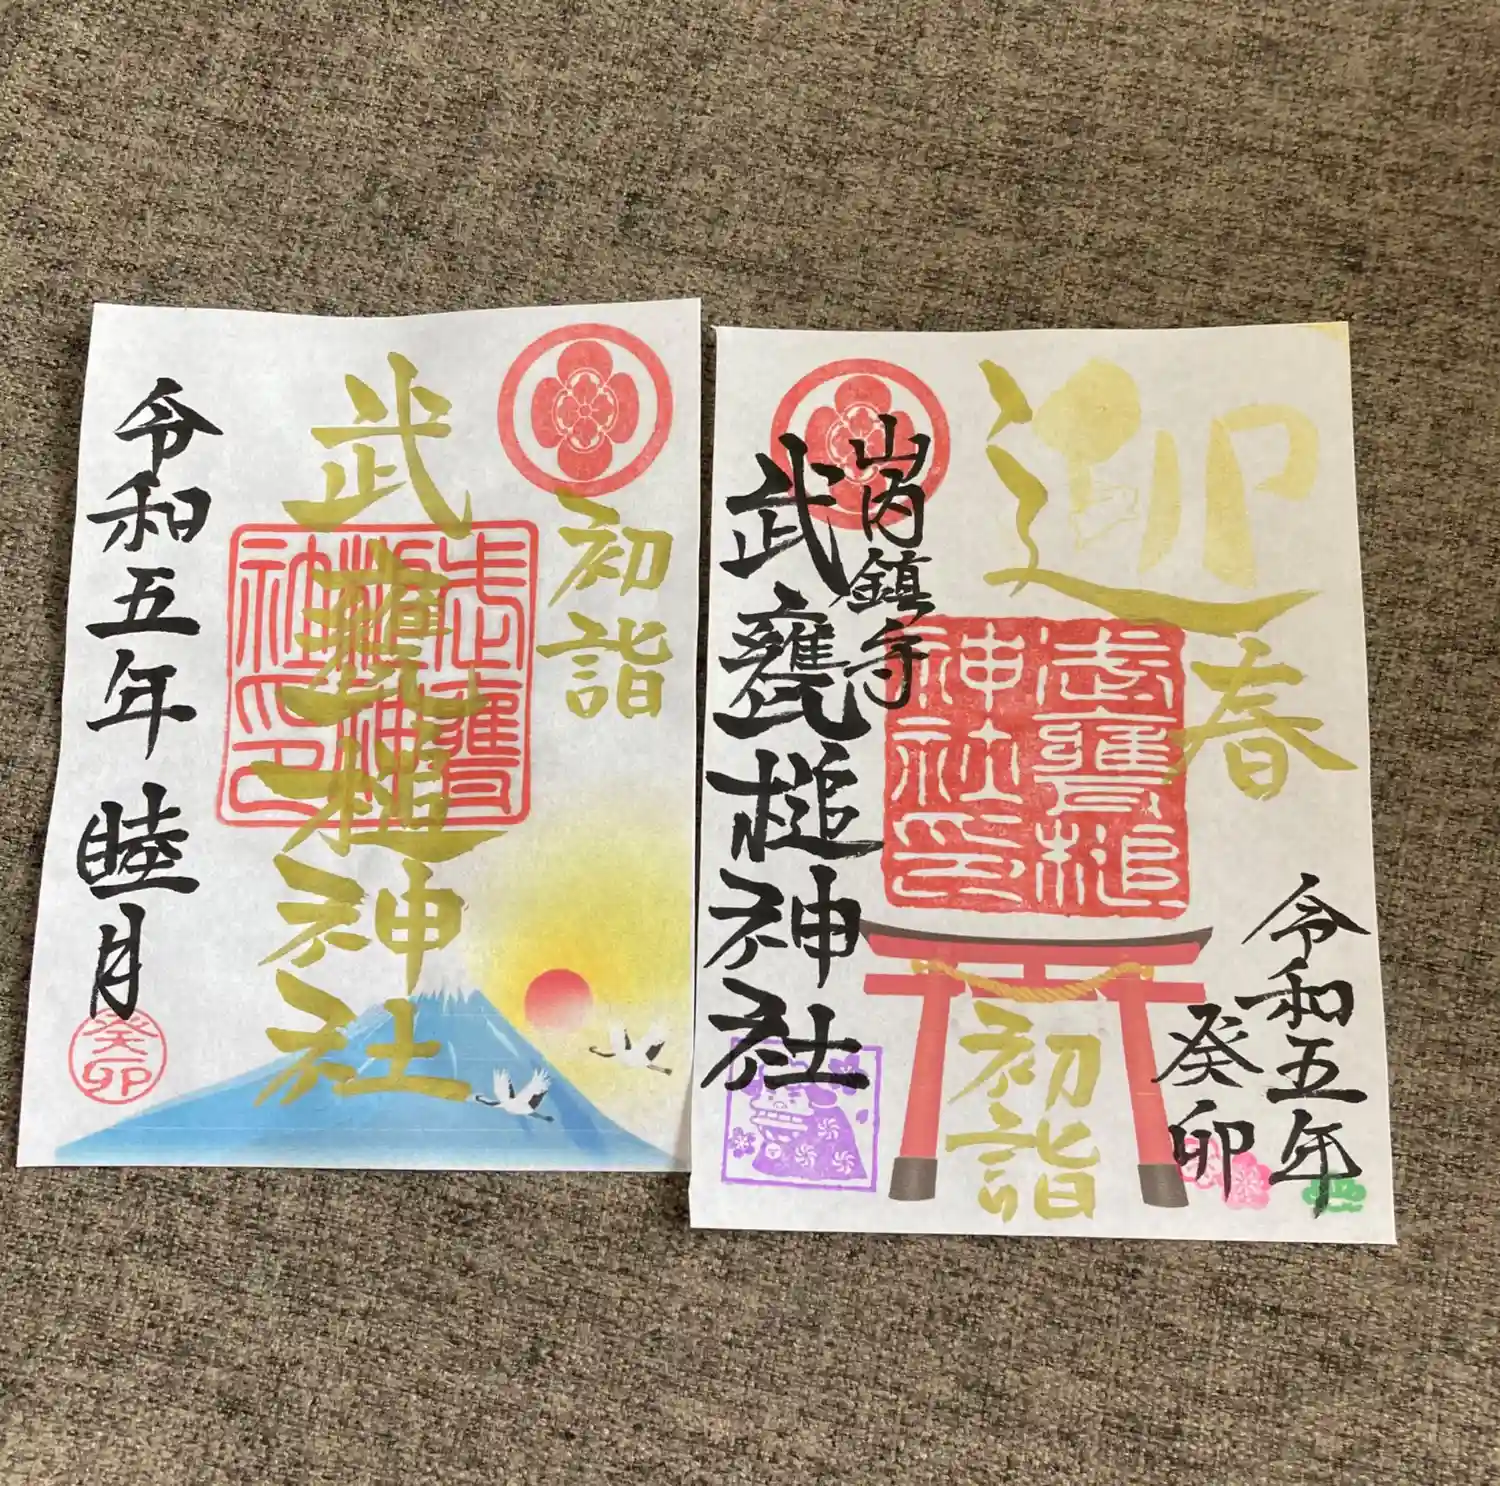 初詣
武甕槌神社
武甕槌神社印
令和五年 睦月
癸卯
迎春
武甕槌神社印
初詣
令和五年
癸卯
山内鎮守
武甕槌神社